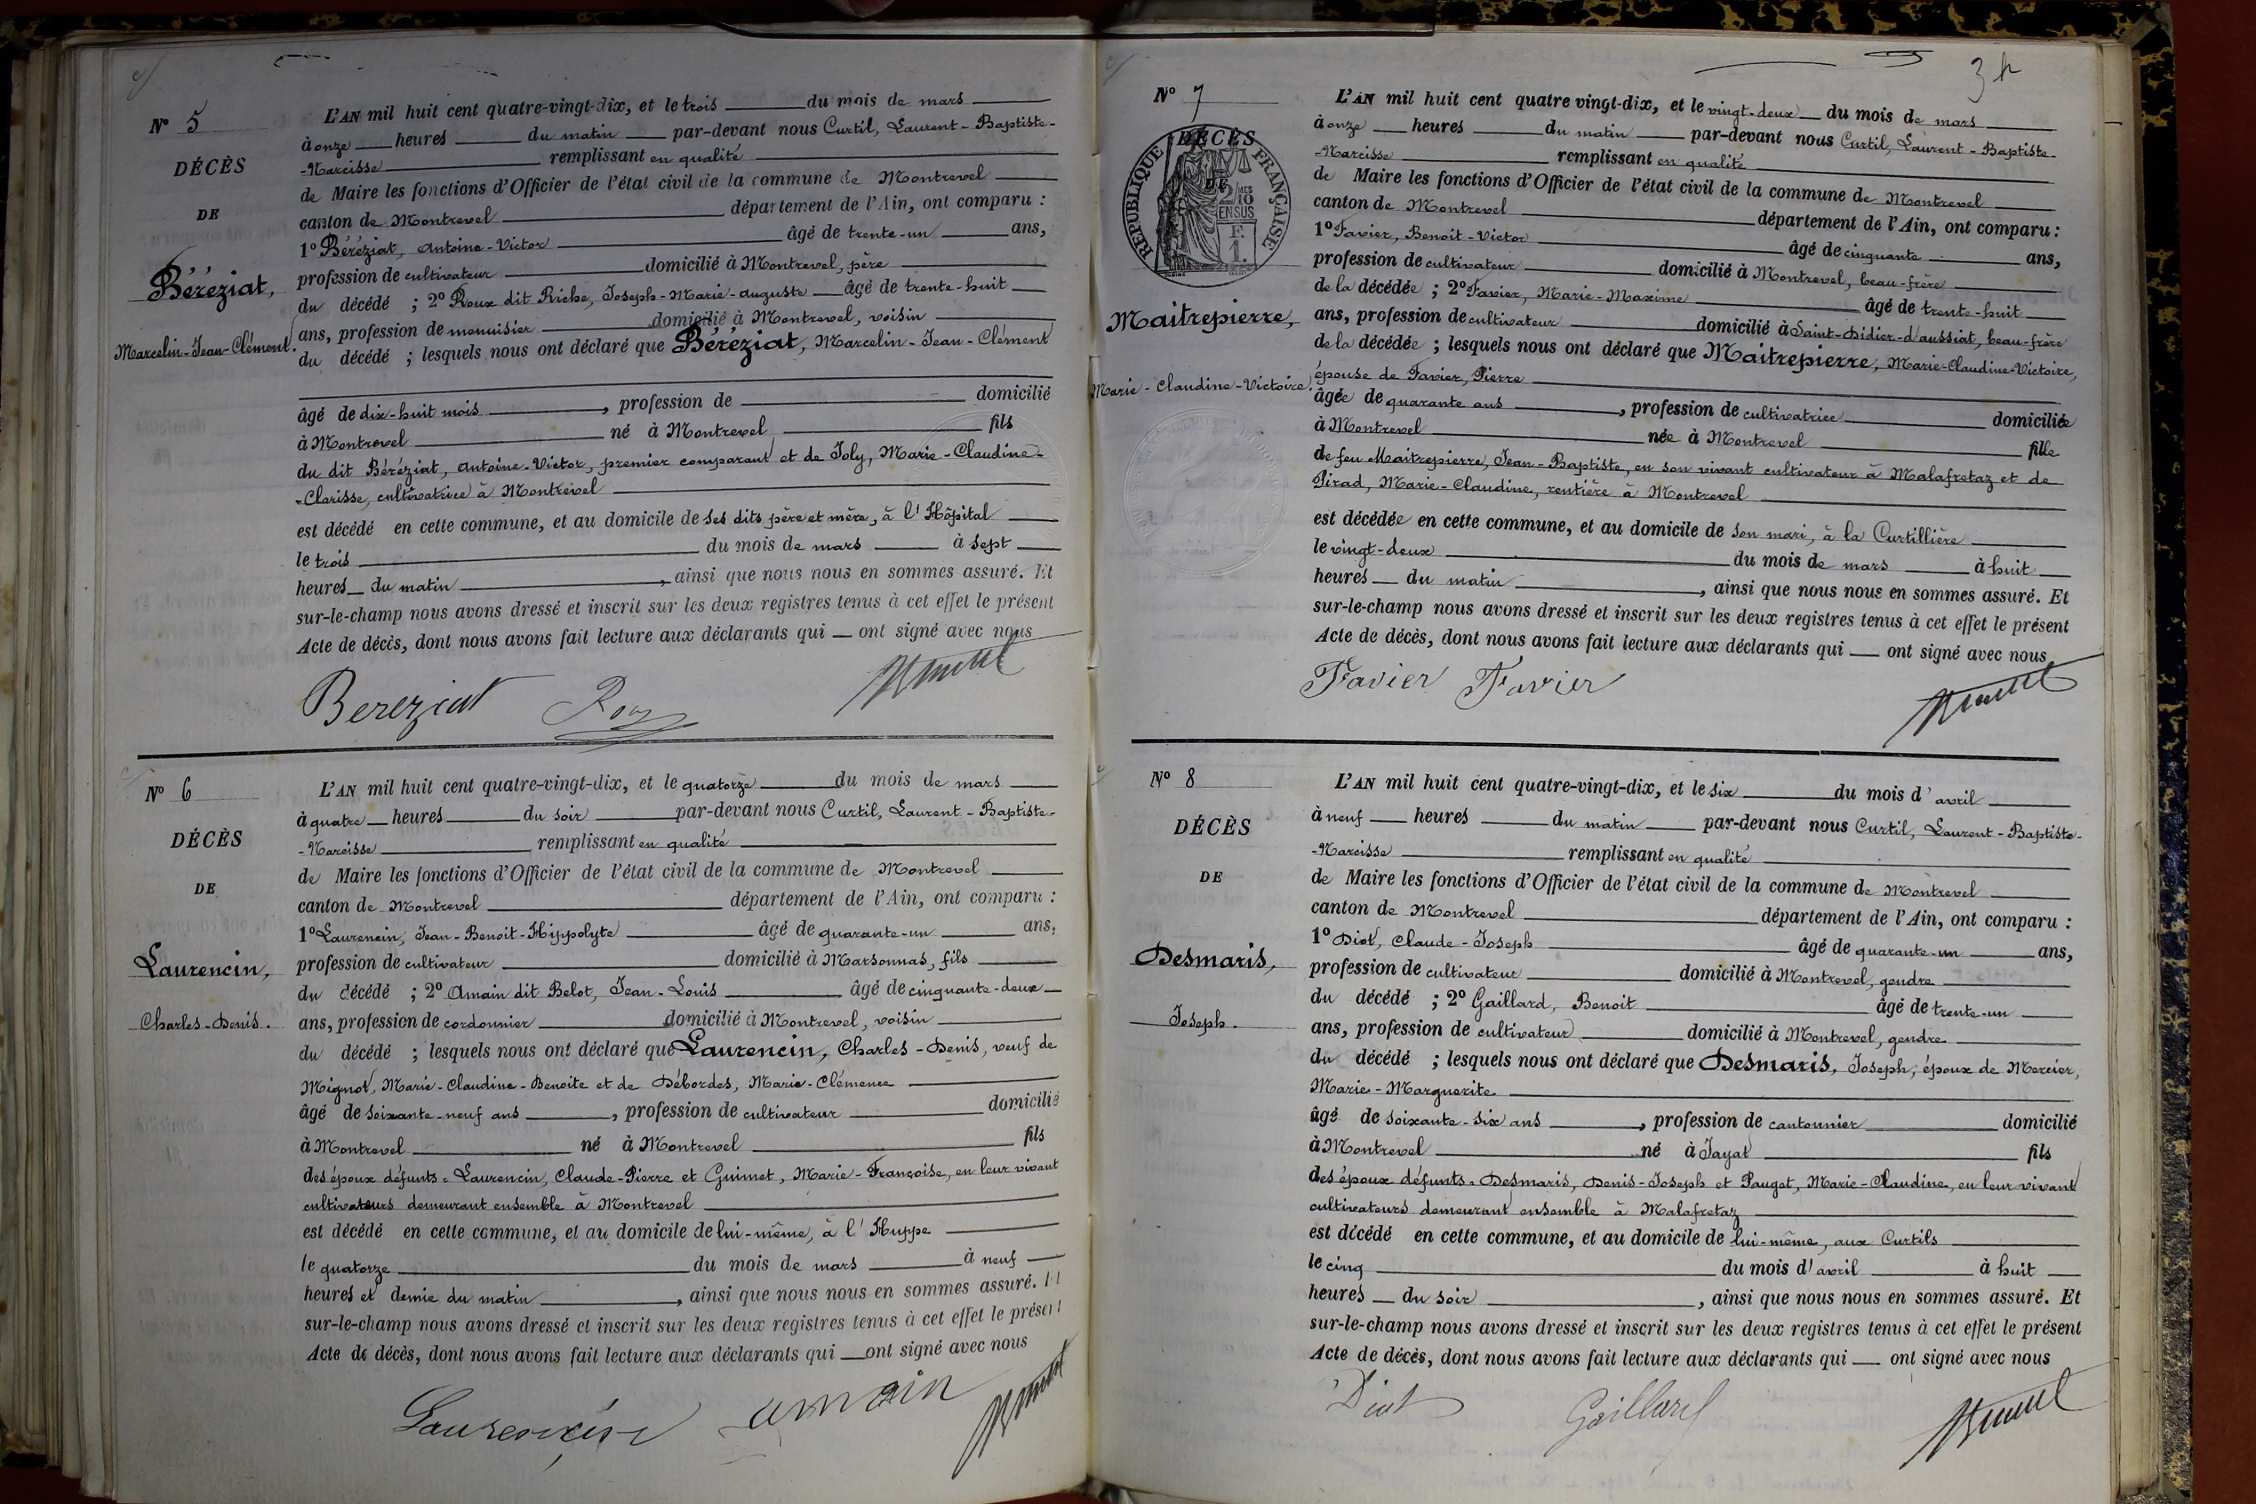 N° 5
DÉCÈS
DE
Béréziat,
Marcelin-Jean-Clément.
L'AN mil huit cent quatre-vingt-dix, et le trois du mois de mars
à onze heures du matin par-devant nous Curtil, Laurent-Baptiste-
-Narcisse remplissant en qualité
de Maire les fonctions d'Officier de l'état civil de la commune de Montrevel
canton de Montrevel département de l'Ain, ont comparu :
1° Béréziat, Antoine-Victor âgé de trente-un ans,
profession de cultivateur domicilié à Montrevel, père
du décédé ; 2° Roux dit Riche, Joseph-Marie-Auguste âgé de trente-huit
ans, profession de menuisier domicilié à Montrevel, voisin
du décédé ; lesquels nous ont déclaré que Béréziat, Marcelin-Jean-Clément
âgé de dix-huit mois, profession de domicilié
à Montrevel né à Montrevel fils
du dit Béréziat, Antoine-Victor, premier comparant et de Joly, Marie-Claudine-
-Clarisse, cultivatrice à Montrevel
est décédé en cette commune, et au domicile de ses dits père et mère, à l'Hôpital
le trois du mois de mars à sept
heures du matin, ainsi que nous nous en sommes assuré. Et
sur-le-champ nous avons dressé et inscrit sur les deux registres tenus à cet effet le présent
Acte de décès, dont nous avons fait lecture aux déclarants qui ont signé avec nous
Bereziat Roux
N° 6
DÉCÈS
DE
Laurencin,
Charles-Denis.
L'AN mil huit cent quatre-vingt-dix, et le quatorze du mois de mars
à quatre heures du soir par-devant nous Curtil, Laurent-Baptiste-
-Narcisse remplissant en qualité
de Maire les fonctions d'Officier de l'état civil de la commune de Montrevel
canton de Montrevel département de l'Ain, ont comparu :
1° Laurencin, Jean-Benoit-Hippolyte âgé de quarante-un ans,
profession de cultivateur domicilié à Marsonnas, fils
du décédé ; 2° Amain dit Belot, Jean-Louis âgé de cinquante-deux
ans, profession de cordonnier domicilié à Montrevel, voisin
du décédé ; lesquels nous ont déclaré que Laurencin, Charles-Denis, veuf de
Mignot, Marie-Claudine-Benoite et de Débordes, Marie-Clémence
âgé de soixante-neuf ans, profession de cultivateur domicilié
à Montrevel né à Montrevel fils
des époux défunts Laurencin, Claude-Pierre et Guimet, Marie-Françoise, en leur vivant
cultivateurs demeurant ensemble à Montrevel
est décédé en cette commune, et au domicile de lui-même, à l'Huppe
le quatorze du mois de mars à neuf
heures et demie du matin, ainsi que nous nous en sommes assuré. Et
sur-le-champ nous avons dressé et inscrit sur les deux registres tenus à cet effet le présent
Acte de décès, dont nous avons fait lecture aux déclarants qui ont signé avec nous
Laurencin amain
N° 7
DÉCÈS
DE
RÉPUBLIQUE FRANÇAISE
2/10 EN SUS
F. 1.
Maitrepierre,
Marie-Claudine-Victoire.
L'AN mil huit cent quatre vingt-dix, et le vingt-deux du mois de mars
à onze heures du matin par-devant nous Curtil, Laurent-Baptiste-
-Narcisse remplissant en qualité
de Maire les fonctions d'Officier de l'état civil de la commune de Montrevel
canton de Montrevel département de l'Ain, ont comparu :
1° Favier, Benoit-Victor âgé de cinquante ans,
profession de cultivateur domicilié à Montrevel, beau-frère
de la décédée ; 2° Favier, Marie-Maxime âgé de trente-huit
ans, profession de cultivateur domicilié à Saint-Didier-d'aussiat, beau-frère
de la décédée ; lesquels nous ont déclaré que Maitrepierre, Marie-Claudine-Victoire,
épouse de Favier, Pierre
âgée de quarante ans, profession de cultivatrice domiciliée
à Montrevel née à Montrevel fille
de feu Maitrepierre, Jean-Baptiste, en son vivant cultivateur à Malafretaz et de
Pirad, Marie-Claudine, rentière à Montrevel
est décédée en cette commune, et au domicile de son mari, à la Curtillière
le vingt-deux du mois de mars à huit
heures du matin, ainsi que nous nous en sommes assuré. Et
sur-le-champ nous avons dressé et inscrit sur les deux registres tenus à cet effet le présent
Acte de décès, dont nous avons fait lecture aux déclarants qui ont signé avec nous
Favier Favier
N° 8
DÉCÈS
DE
Desmaris,
Joseph.
L'AN mil huit cent quatre-vingt-dix, et le six du mois d'avril
à neuf heures du matin par-devant nous Curtil, Laurent-Baptiste-
-Narcisse remplissant en qualité
de Maire les fonctions d'Officier de l'état civil de la commune de Montrevel
canton de Montrevel département de l'Ain, ont comparu :
1° Diot, Claude-Joseph âgé de quarante-un ans,
profession de cultivateur domicilié à Montrevel, gendre
du décédé ; 2° Gaillard, Benoit âgé de trente-un
ans, profession de cultivateur domicilié à Montrevel, gendre
du décédé ; lesquels nous ont déclaré que Desmaris, Joseph, époux de Mercier,
Marie-Marguerite
âgé de soixante-six ans, profession de cantonnier domicilié
à Montrevel né à Jayat fils
des époux défunts Desmaris, Denis-Joseph et Pauget, Marie-Claudine, en leur vivant
cultivateurs demeurant ensemble à Malafretaz
est décédé en cette commune, et au domicile de lui-même, aux Curtils
le cinq du mois d'avril à huit
heures du soir, ainsi que nous nous en sommes assuré. Et
sur-le-champ nous avons dressé et inscrit sur les deux registres tenus à cet effet le présent
Acte de décès, dont nous avons fait lecture aux déclarants qui ont signé avec nous
Diot Gaillard